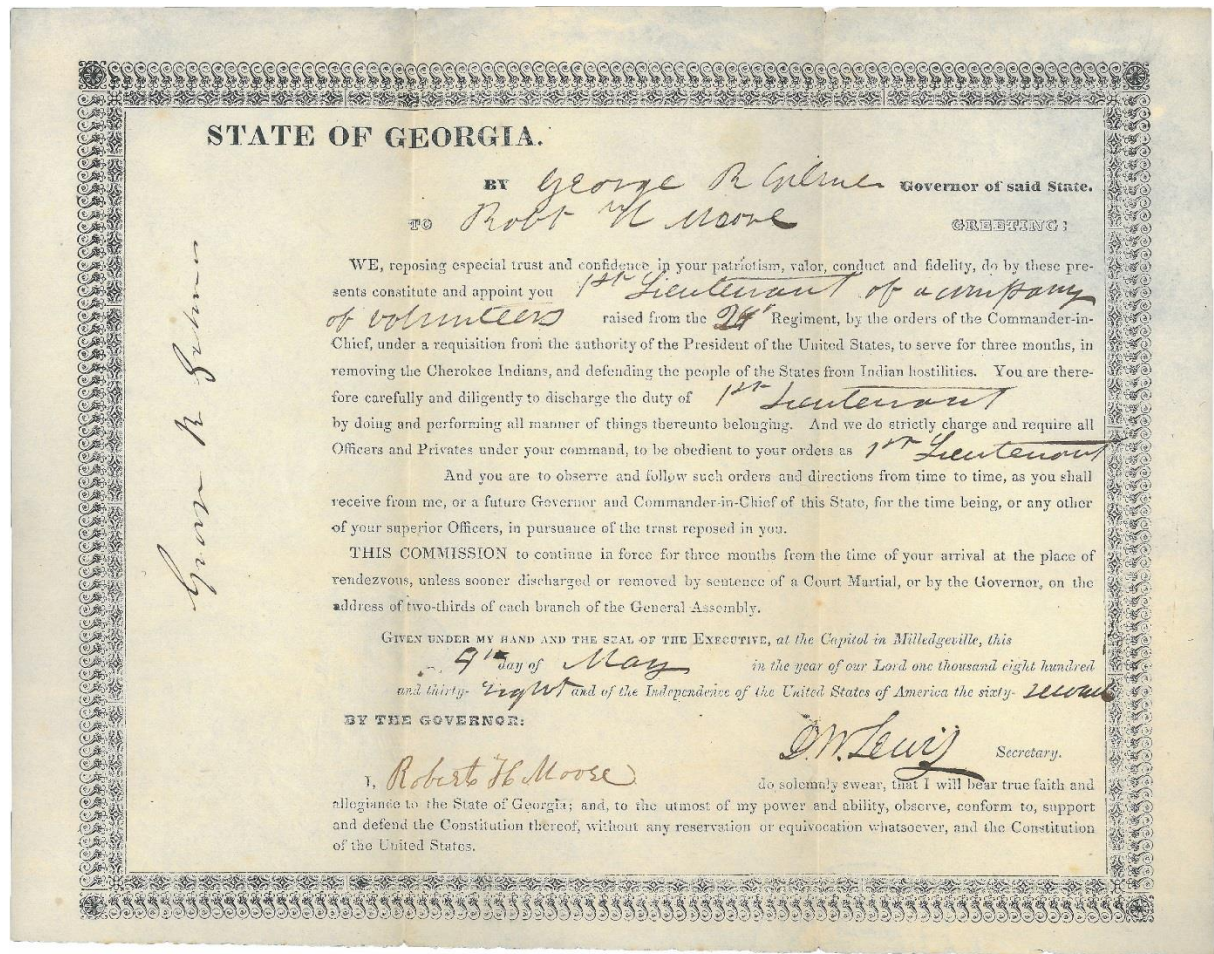 STATE OF GEORGIA.
BY George R Gilmer Governor of said State.
TO Robt H Moore GREETING:
WE, reposing especial trust and confidence in your patriotism, valor, conduct and fidelity, do by these pre-
sents constitute and appoint you 1st Lieutenant of a company
of volunteers raised from the Regiment, by the orders of the Commander-in-
Chief, under a requisition from the authority of the President of the United States, to serve for three months, in
removing the Cherokee Indians, and defending the people of the States from Indian hostilities. You are there-
fore carefully and diligently to discharge the duty of 1st Lieutenant
by doing and performing all manner of things thereunto belonging. And we do strictly charge and require all
Officers and Privates under your command, to be obedient to your orders as 1st Lieutenant
And you are to observe and follow such orders and directions from time to time, as you shall
receive from me, or a future Governor and Commander-in-Chief of this State, for the time being, or any other
of your superior Officers, in pursuance of the trust reposed in you.
THIS COMMISSION to continue in force for three months from the time of your arrival at the place of
rendezvous, unless sooner discharged or removed by sentence of a Court Martial, or by the Governor, on the
address of two-thirds of each branch of the General Assembly.
GIVEN UNDER MY HAND AND THE SEAL OF THE EXECUTIVE, at the Capitol in Milledgeville, this
9th day of May in the year of our Lord one thousand eight hundred
and thirty- eight and of the Independence of the United States of America the sixty- second
BY THE GOVERNOR:
D.W. Lewis Secretary.
I, Robert H Moore do solemnly swear, that I will bear true faith and
allegiance to the State of Georgia; and, to the utmost of my power and ability, observe, conform to, support
and defend the Constitution thereof, without any reservation or equivocation whatsoever, and the Constitution
of the United States.
George R Gilmer